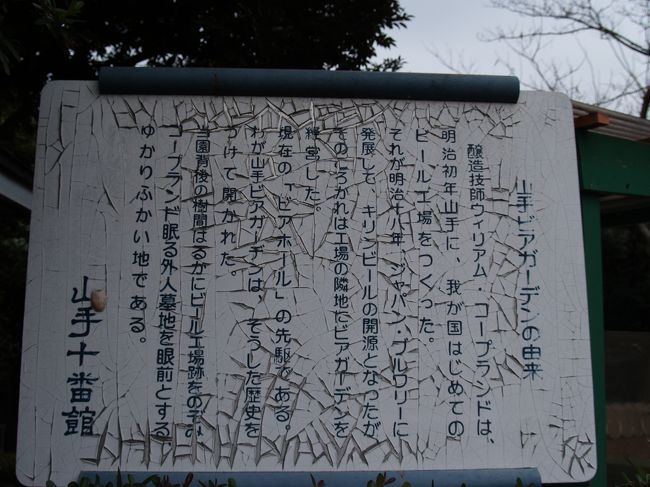 山手ビアガーデンの由来
醸造技師ウィリアム・コープランドは、
明治初年山手に、我が国はじめての
ビール工場をつくった。
それが明治十八年、ジャパン・ブルワリーに
発展して、キリンビールの開源となったが
そのころかれは工場の隣地にビアガーデンを
経営した。
現在の「ビアホール」の先駆である。
わが山手ビアガーデンは、そうした歴史を
うけて開かれた。
当園背後の樹間はるかにビール工場跡をのぞみ
コープランド眠る外人墓地を眼前とする
ゆかりふかい地である。
山手十番館